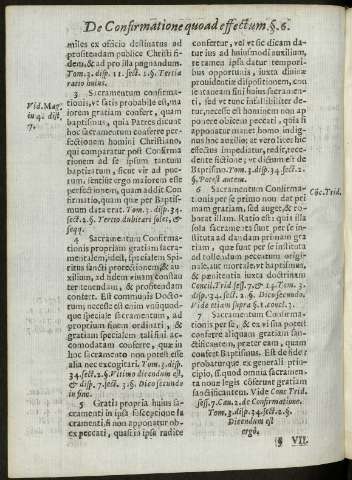 De Confirmatione quoad effectum. §. 6.
miles ex officio destinatus ad
profitendam publice Christi fi-
dem, & ad pro illa pugnandum.
Tom. 3. disp. 11. sect. 1. §. Tertia
ratio huius.
Vid. Mag.
in 4. dist.
7.
3 Sacramentum confirma-
tionis, vt satis probabile est, ma
iorem gratiam confert, quam
baptismus, quia Patres dicunt
hoc sacramentum conferre per-
fectionem homini Christiano,
qui comparatur post Confirma
tionem ad se ipsum tantum
baptizatum, sicut vir ad pue-
rum. sentiūt ergo maiorem esse
perfectionem, quam addit Con
firmatio, quam quæ per Baptis-
mum data erat. Tom. 3. disp. 34.
sect. 2. §. Tertio dubitari solet, &
seqq.
4 Sacramentum Confirma-
tionis propriam gratiam sacra-
mentalem, idest, specialem Spi-
ritus sancti protectionem, & au
xilium, ad fidem cum constan
ter tenendam, & profitendam
confert. Est communis Docto-
rum; necesse est enim vnumquod-
que speciale sacramentum, ad
proprium finem ordinati, &
gratiam specialem tali fini ac-
comodatam conferre, quæ in
hoc sacramento non potest esse
alia nec excogitari. Tom. 3. disp.
34. sect. 2. §. Vltimo dicendum est,
& disp. 7. sect. 3. §. Dico secundo
in fine.
5 Gratia propria huius sa-
cramenti in ipsa susceptione sa
cramenti, si non apponatur ob-
ex peccati, quasi in ipsa radice
confertur, vel vt sic dicam da-
tur ius ad huiusmodi auxilium,
te tamen ipsa datur tempori-
bus opportunis, iuxta diuinæ
prouidentiæ dispositionem, con
ditionem tamen huius sacramen-
ti, sed vt tunc infallibiliter de-
tur, necesse est hominem non ap
ponere obicem peccati, quia si
apponatur manet homo indig-
nus hoc auxilio; at vero licet hic
effectus impediatur, redit, rece-
dente fictione; vt dictum est de
Baptismo. Tom. 3. disp. 34. sect. 2.
§. Potest autem.
Cōc. Trid.
6 Sacramentum Confirma-
tionis per se primo non dat pri
mam gratiam, sed auget, & ro-
borat illam. Ratio est: quia illa
sola sacramenta sunt per se in-
stituta ad dandam primam gra
tiam, quæ sunt per se instituta
ad tollendum peccatum origi-
nale, aut mortale, vt baptismus,
& pœnitentia iuxta doctrinam
Concil. Trid. sess. 7. & 14. Tom. 3.
disp. 34. sect. 2. §. Dico secundo.
Vide etiam supra §. 1. concl. 3.
7 Sacramentum Confirma-
tionis per se, & ex vi sua potest
conferre aliquam gratiam san-
ctificantem, præter eam, quam
confert Baptismus. Est de fide: &
probatur que ex generali prin-
cipio, scil. quod omnia sacramen-
ta nouæ legis coferunt gratiam
sanctificantem. Vide Conc Trid.
sess. 7. Can. 2. de Confirmatione.
Tom. 3. disp. 34. sect. 2. §.
Dicendum est
ergo.
§ VII.